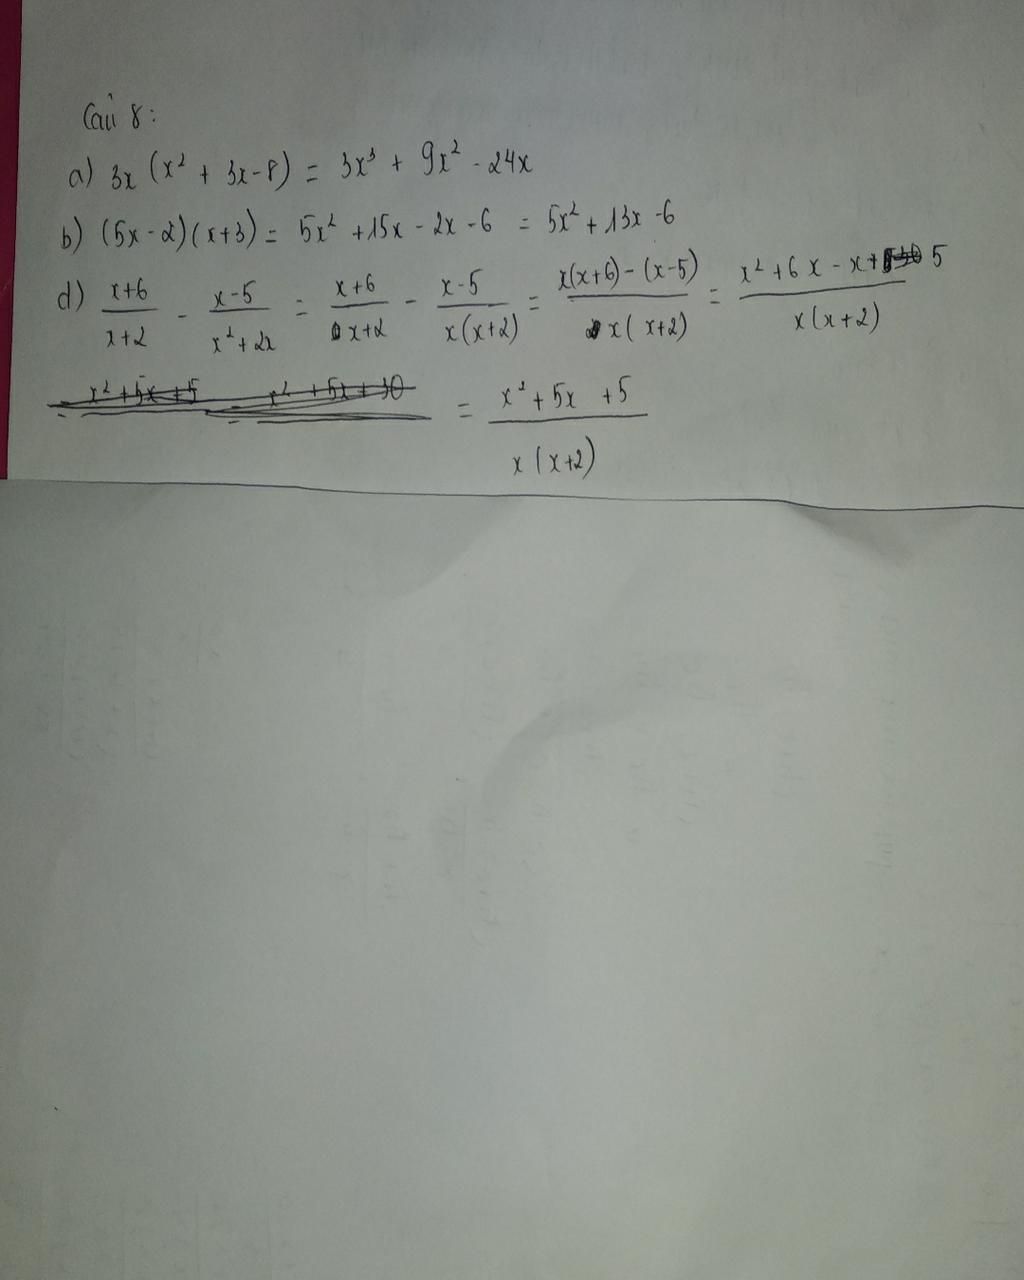 Câu 8:
a) 3x (x² + 3x - 8) = 3x³ + 9x² - 24x
b) (5x - 2)(x+3) = 5x² + 15x - 2x - 6 = 5x² + 13x - 6
d) (x+6)/(x+2) - (x-5)/(x²+2x) = (x+6)/(x+2) - (x-5)/(x(x+2)) = (x(x+6) - (x-5))/(x(x+2)) = (x² + 6x - x + 5)/(x(x+2))
= (x² + 5x + 5)/(x(x+2))